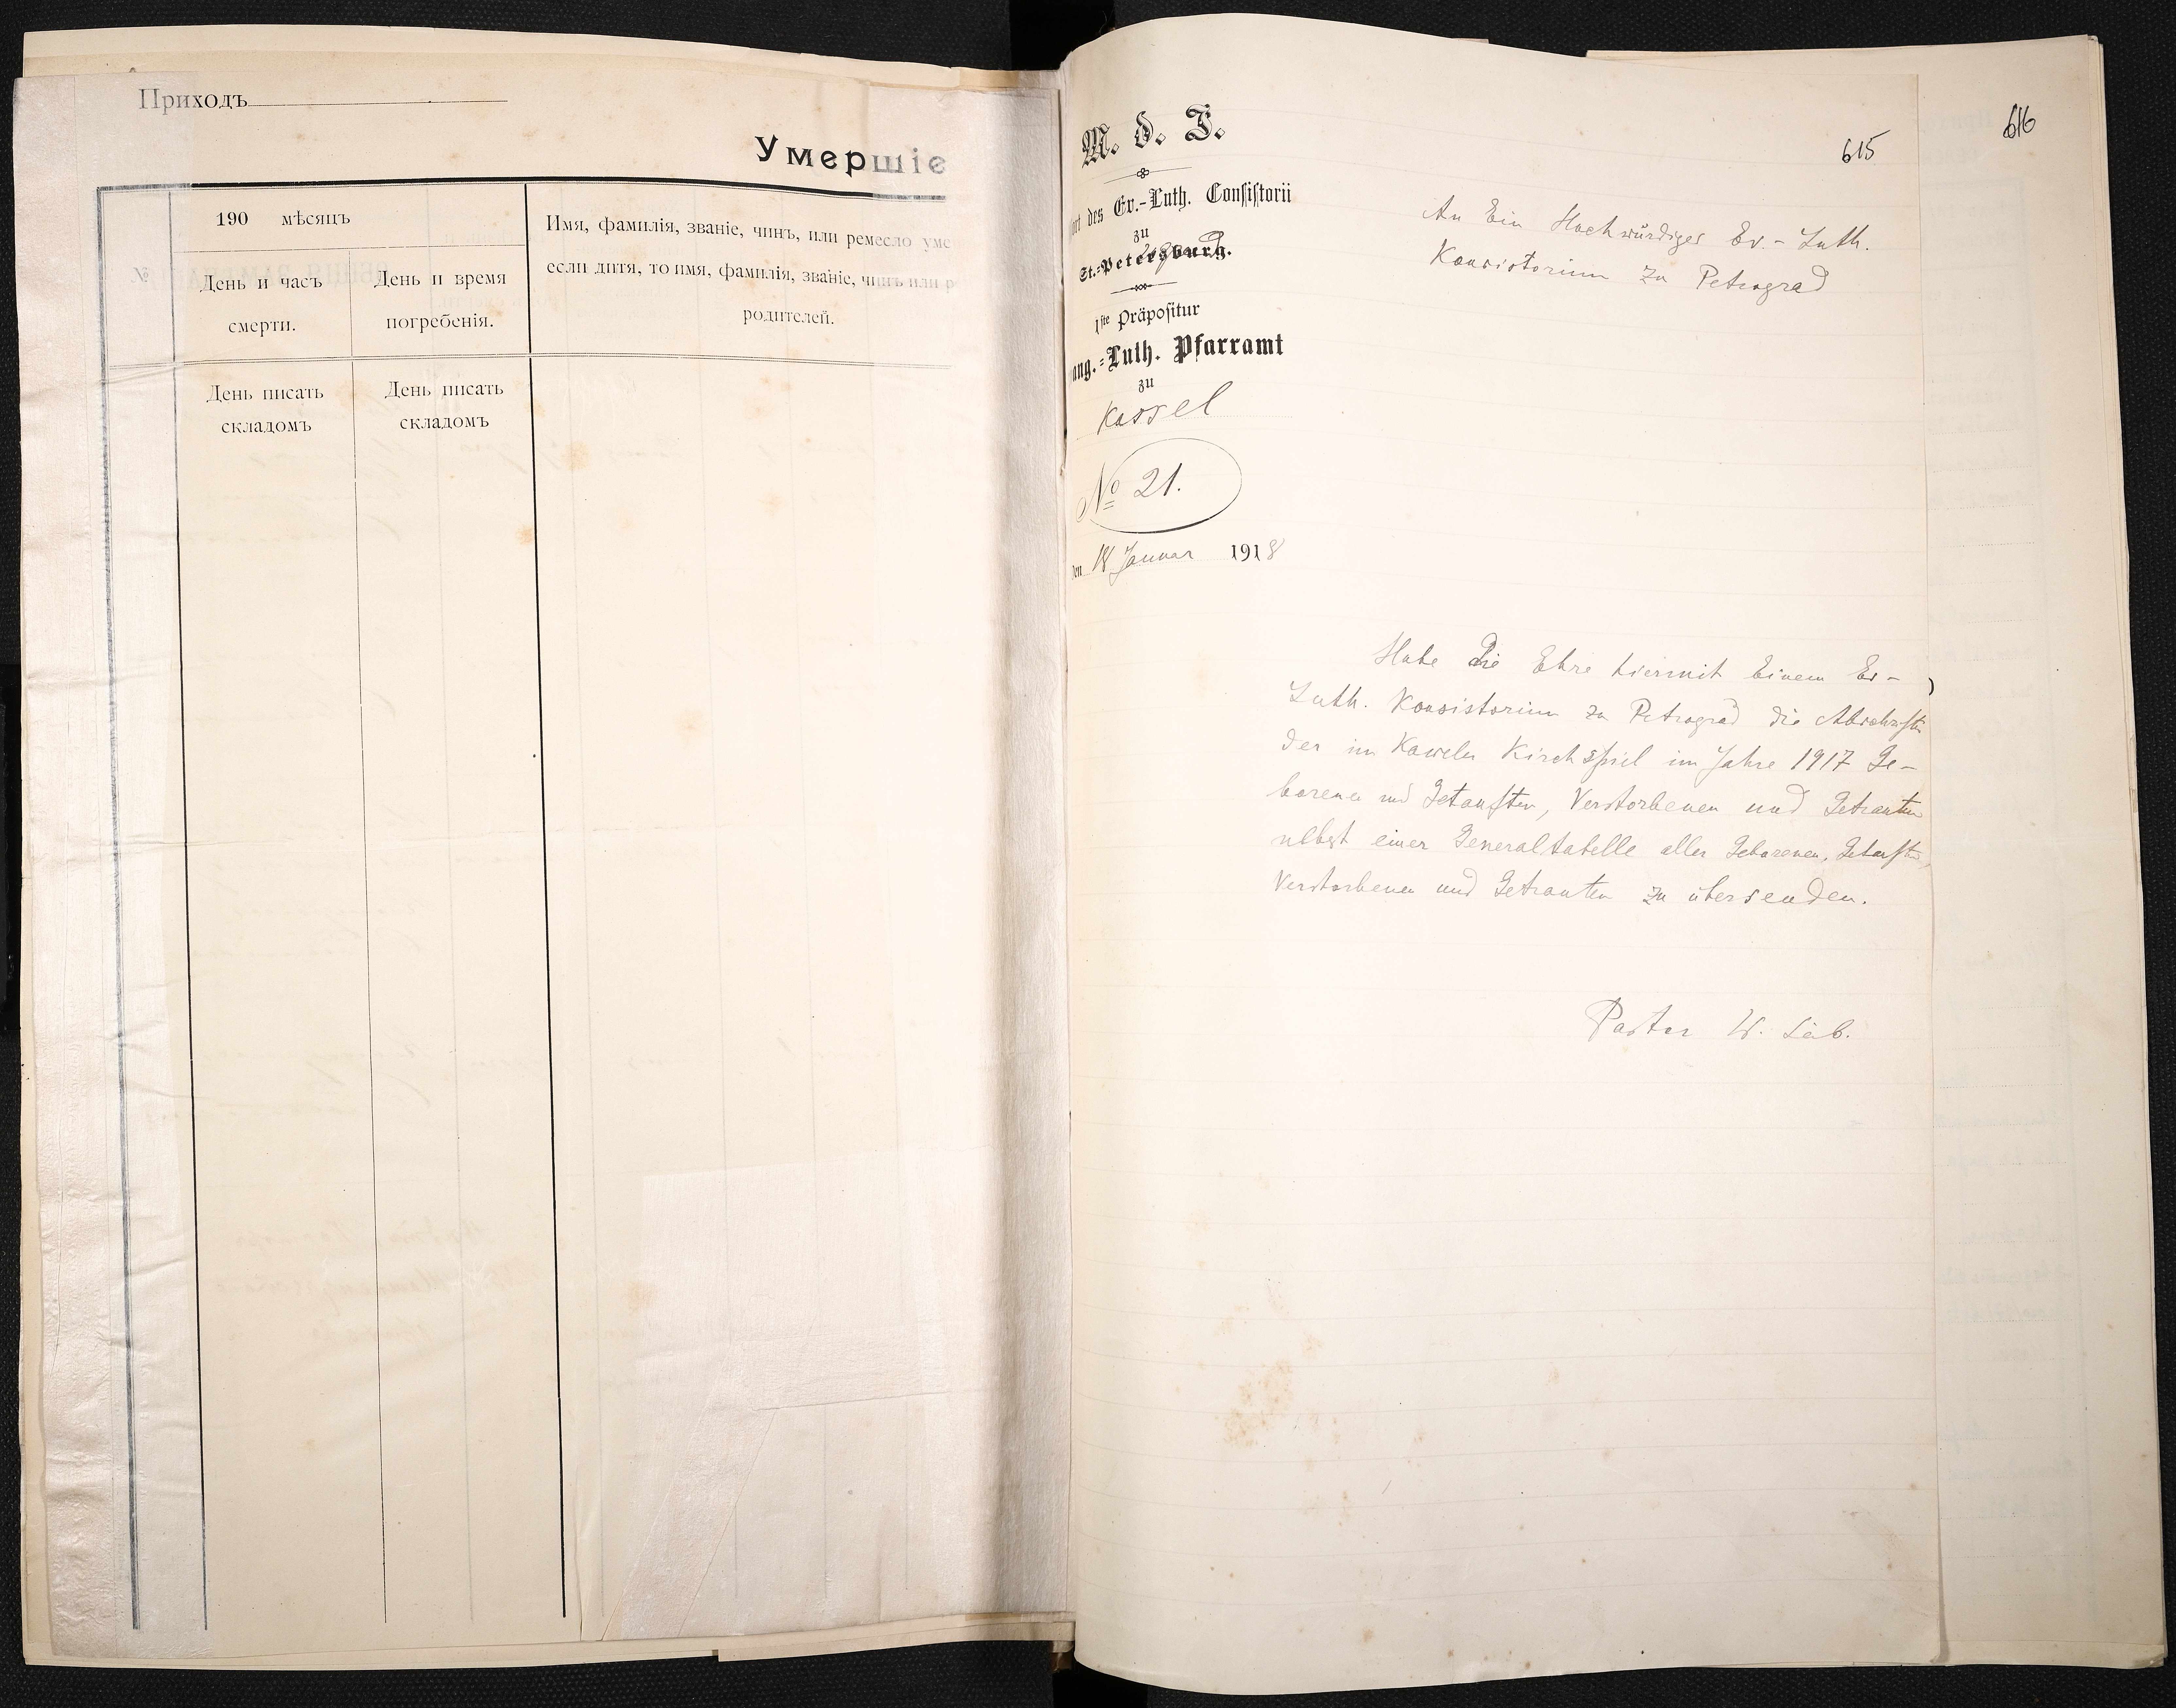 Приходъ
Умершіе
№
190 мѣсяцъ
День и часъ
смерти.
День и время
погребенія.
Имя, фамилія, званіе, чинъ, или ремесло уме
если дитя, то имя, фамилія, званіе, чинъ или р
родителей.
День писать
складомъ
День писать
складомъ
M. d. I.
des Ev.-Luth. Consistorii
zu
St.-Petersburg.
1ste Präpositur
ang.-Luth. Pfarramt
zu
Kassel
№ 21.
den 18 Januar 1918
615
616
An Ein Hochwürdiges Ev.-Luth.
Konsistorium zu Petrograd
Habe die Ehre hiermit Einem Ev-
Luth. Konsistorium zu Petrograd die Abschriften
der im Kasseler Kirchspiel im Jahre 1917 Ge-
borenen und Getauften, Verstorbenen und Getrauten
nebst einer Generaltabelle aller Geborenen, Getauften,
Verstorbenen und Getrauten zu übersenden.
Pastor W.